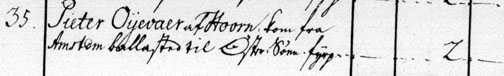 35. Pieter Oijevaer af Hoorn. kom fra
Amstdm ballasted til Øster Sønn fyrp. 2.